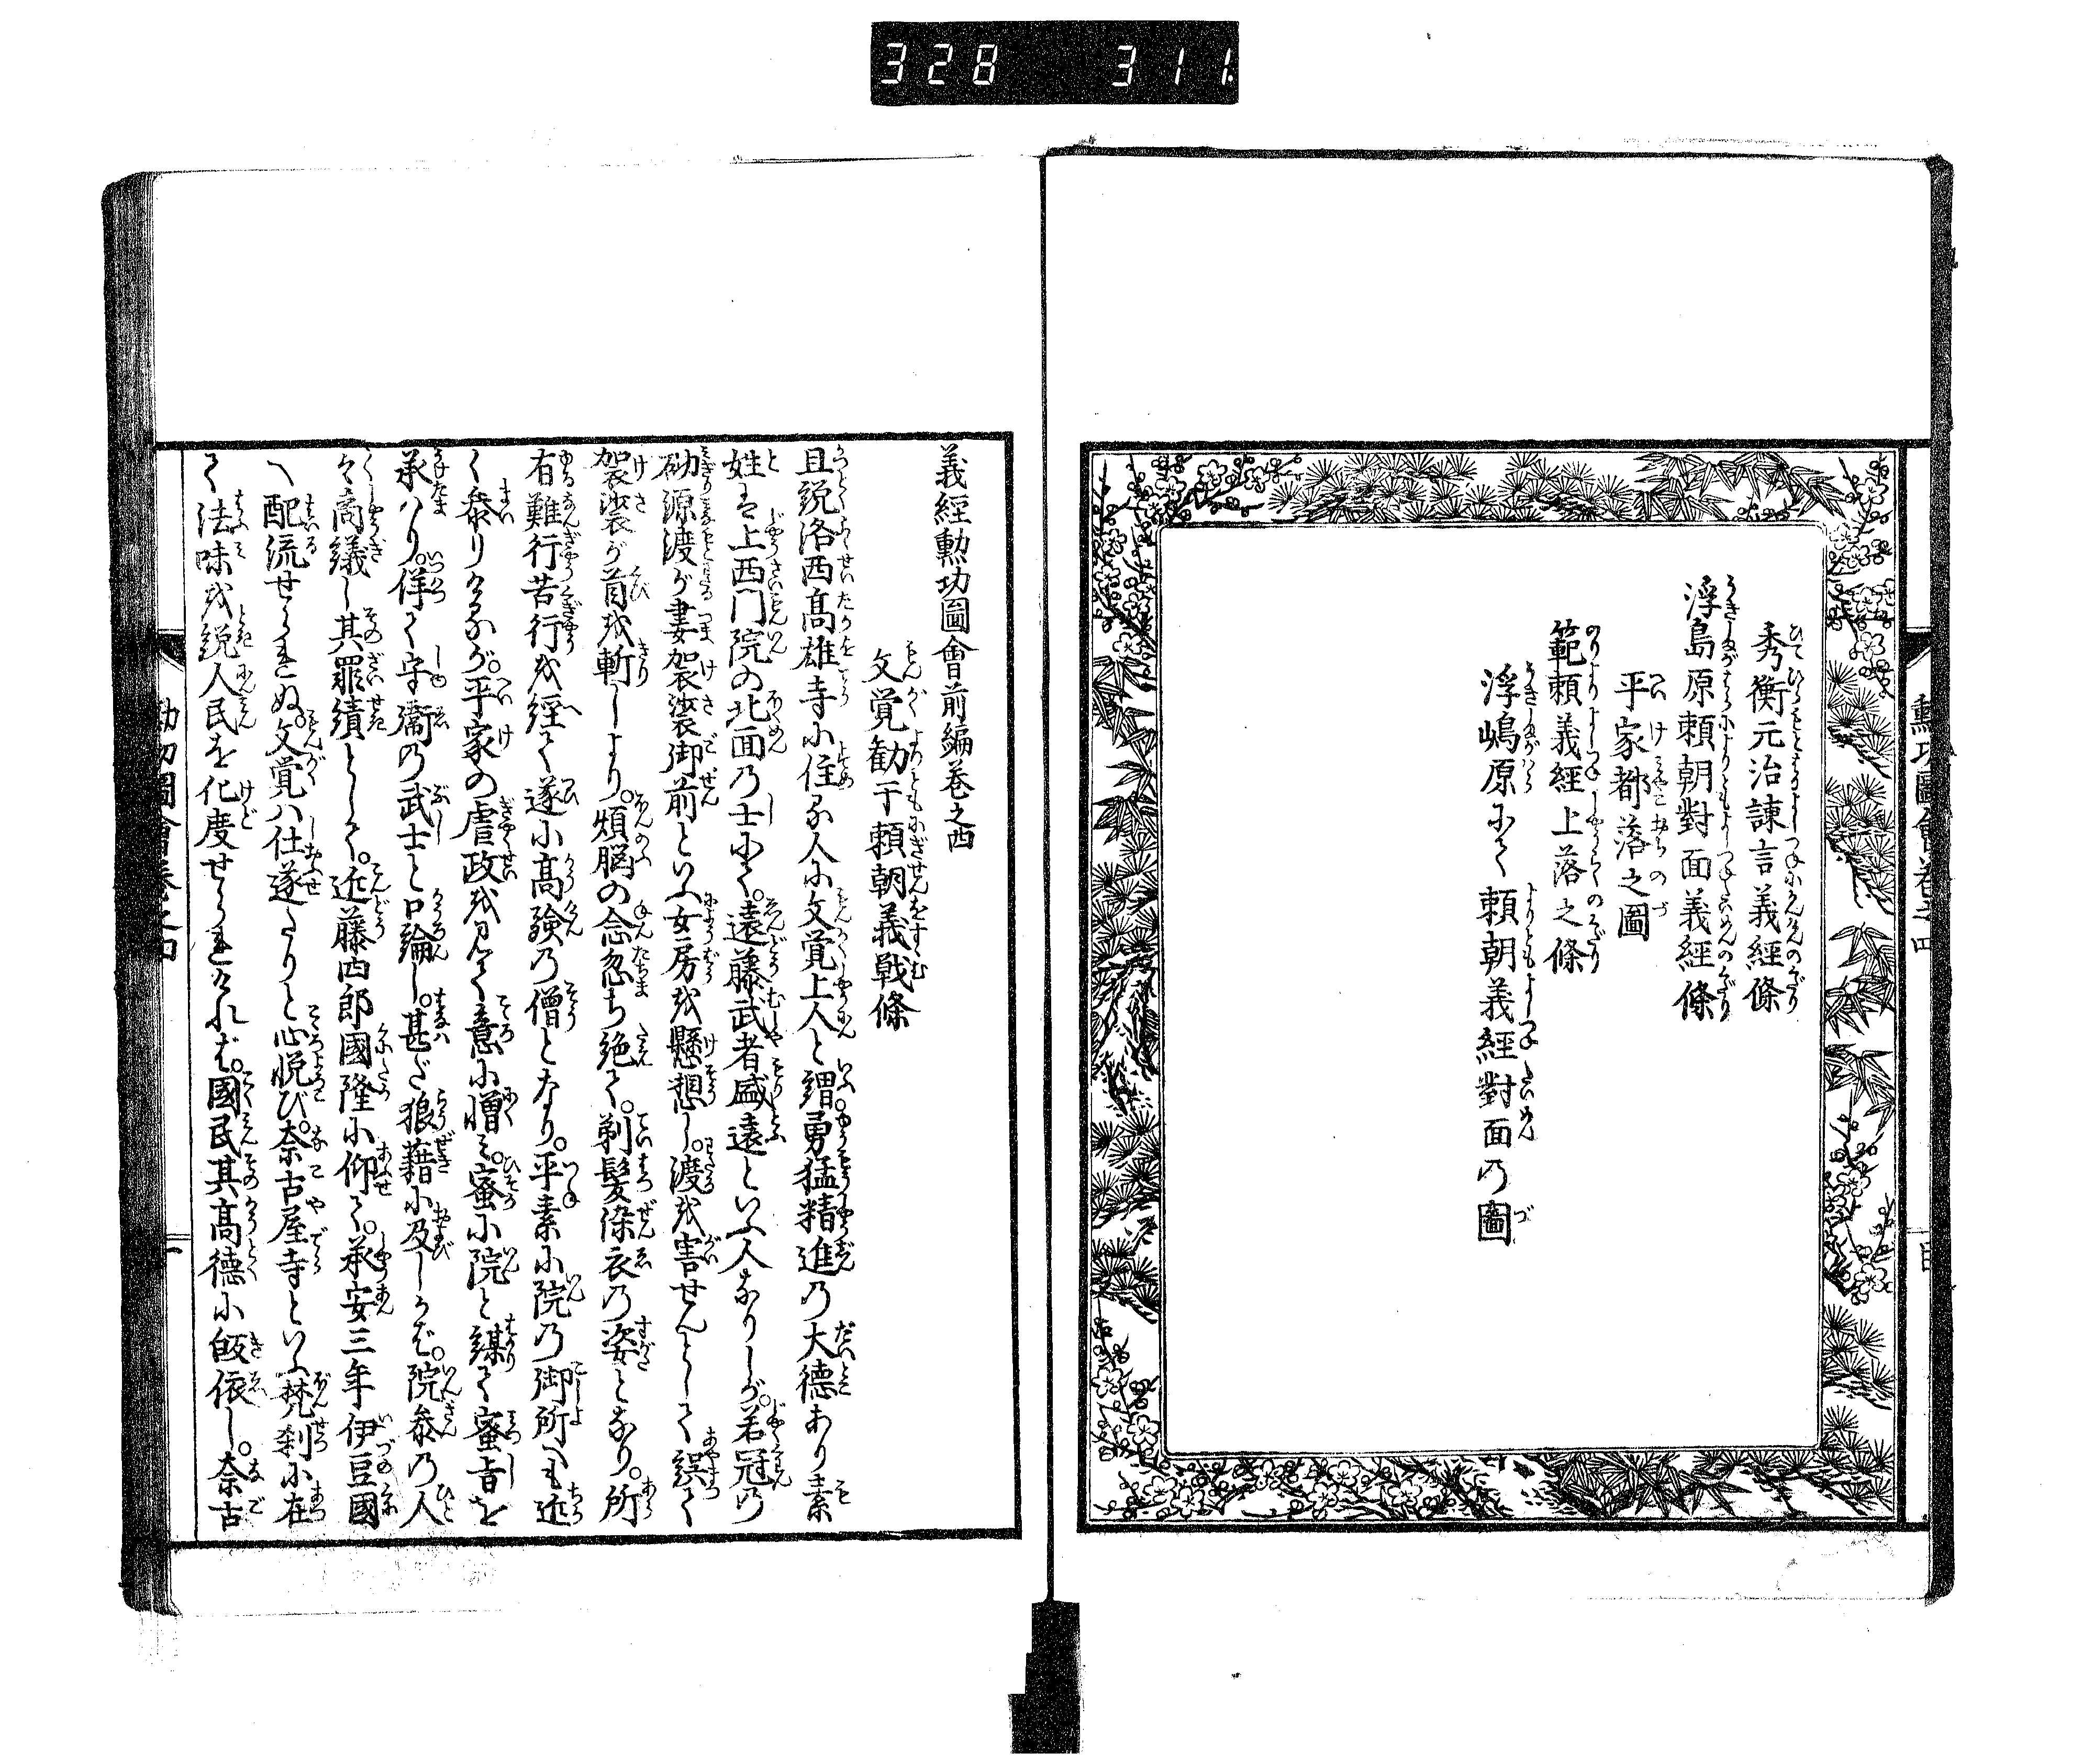 328 311
秀衡元治諌言義經條
浮島原頼朝對面義經條
平家都落之圖
範頼義經上落之條
浮嶋原にて頼朝義經對面の圖
義經勲功圖會前編巻之四
文覚勧于頼朝義戦條
且説洛西髙雄寺に住る人に文覚上人と謂勇猛精進の大徳あり素
姓は上西门院の北面の士にて。遠藤武者盛遠といふ人なりしが。若冠の
砌源渡が妻袈裟御前といふ女房を懸想し。渡を害せんとして誤て
袈裟が首を斬しより。煩脳の念忽ち絶て。剃髪染衣の姿となり。所
有難行苦行を経て遂に髙験の僧となり。平素に院の御所へも近
く參りけるが。平家の虐政を見て意に憎み。蜜に院と謀て蜜旨を
承はり。佯て守衞の武士と口論し。甚だ狼藉に及しかば。院參の人
〻商議し其罪績として。近藤四郎國隆に仰て。承安三年伊豆國
へ配流せられぬ。文覚ハ仕遂たりと心悦び。奈古屋寺といふ梵刹に在
て法味を説人民を化度せられけれバ。國民其髙徳に皈依し。奈古
勲功圖會巻之四